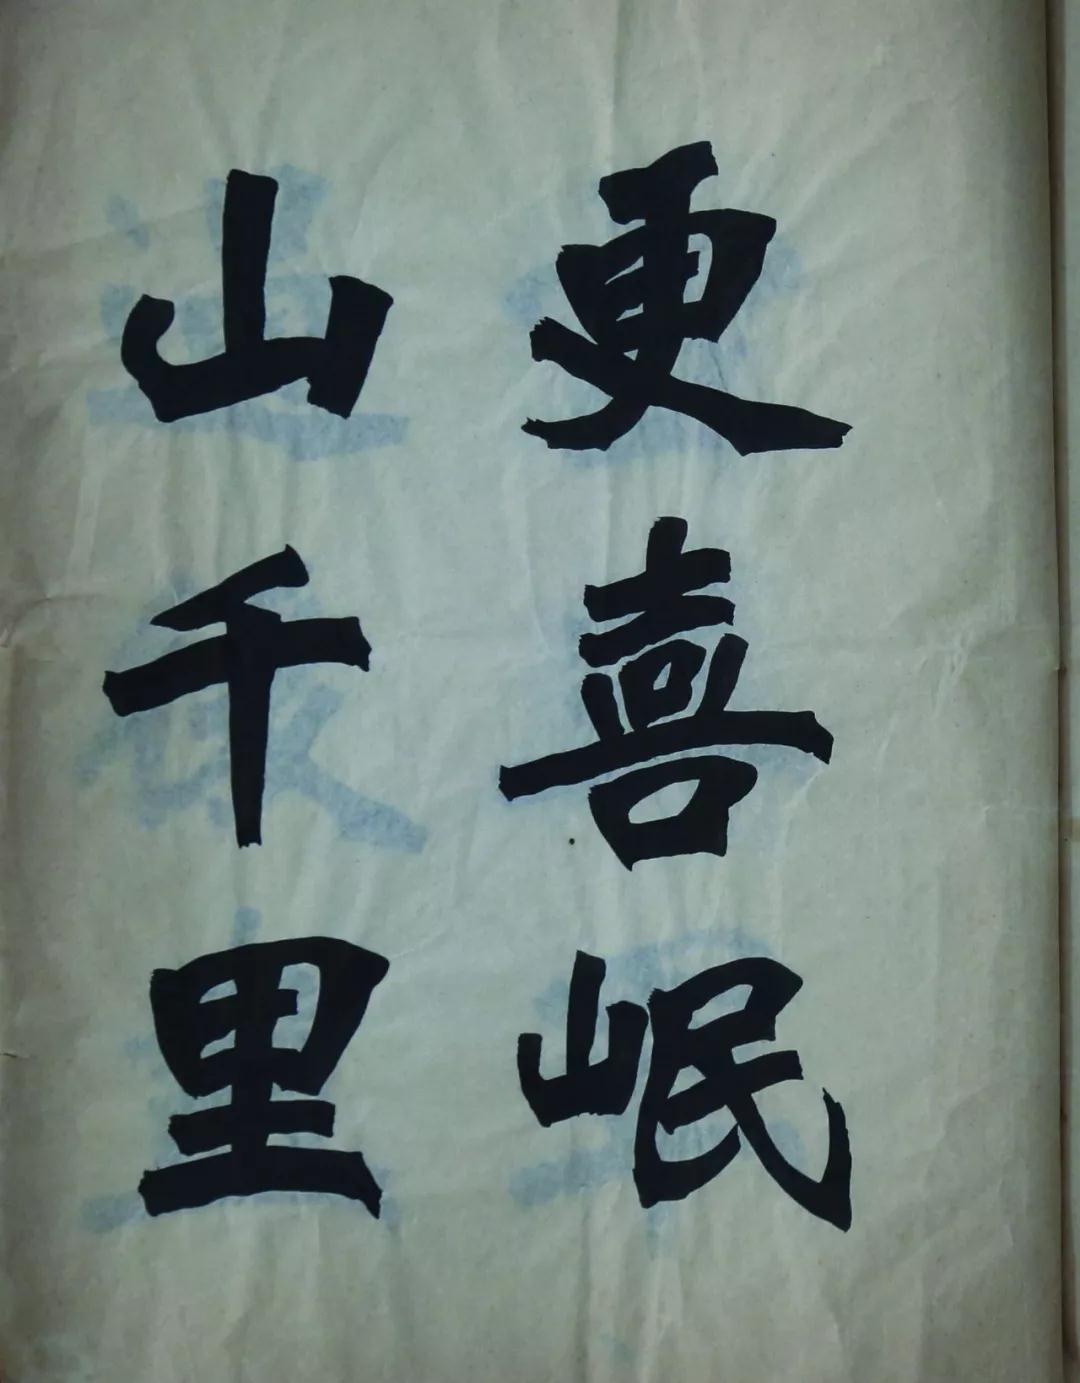 更喜岷
山千里